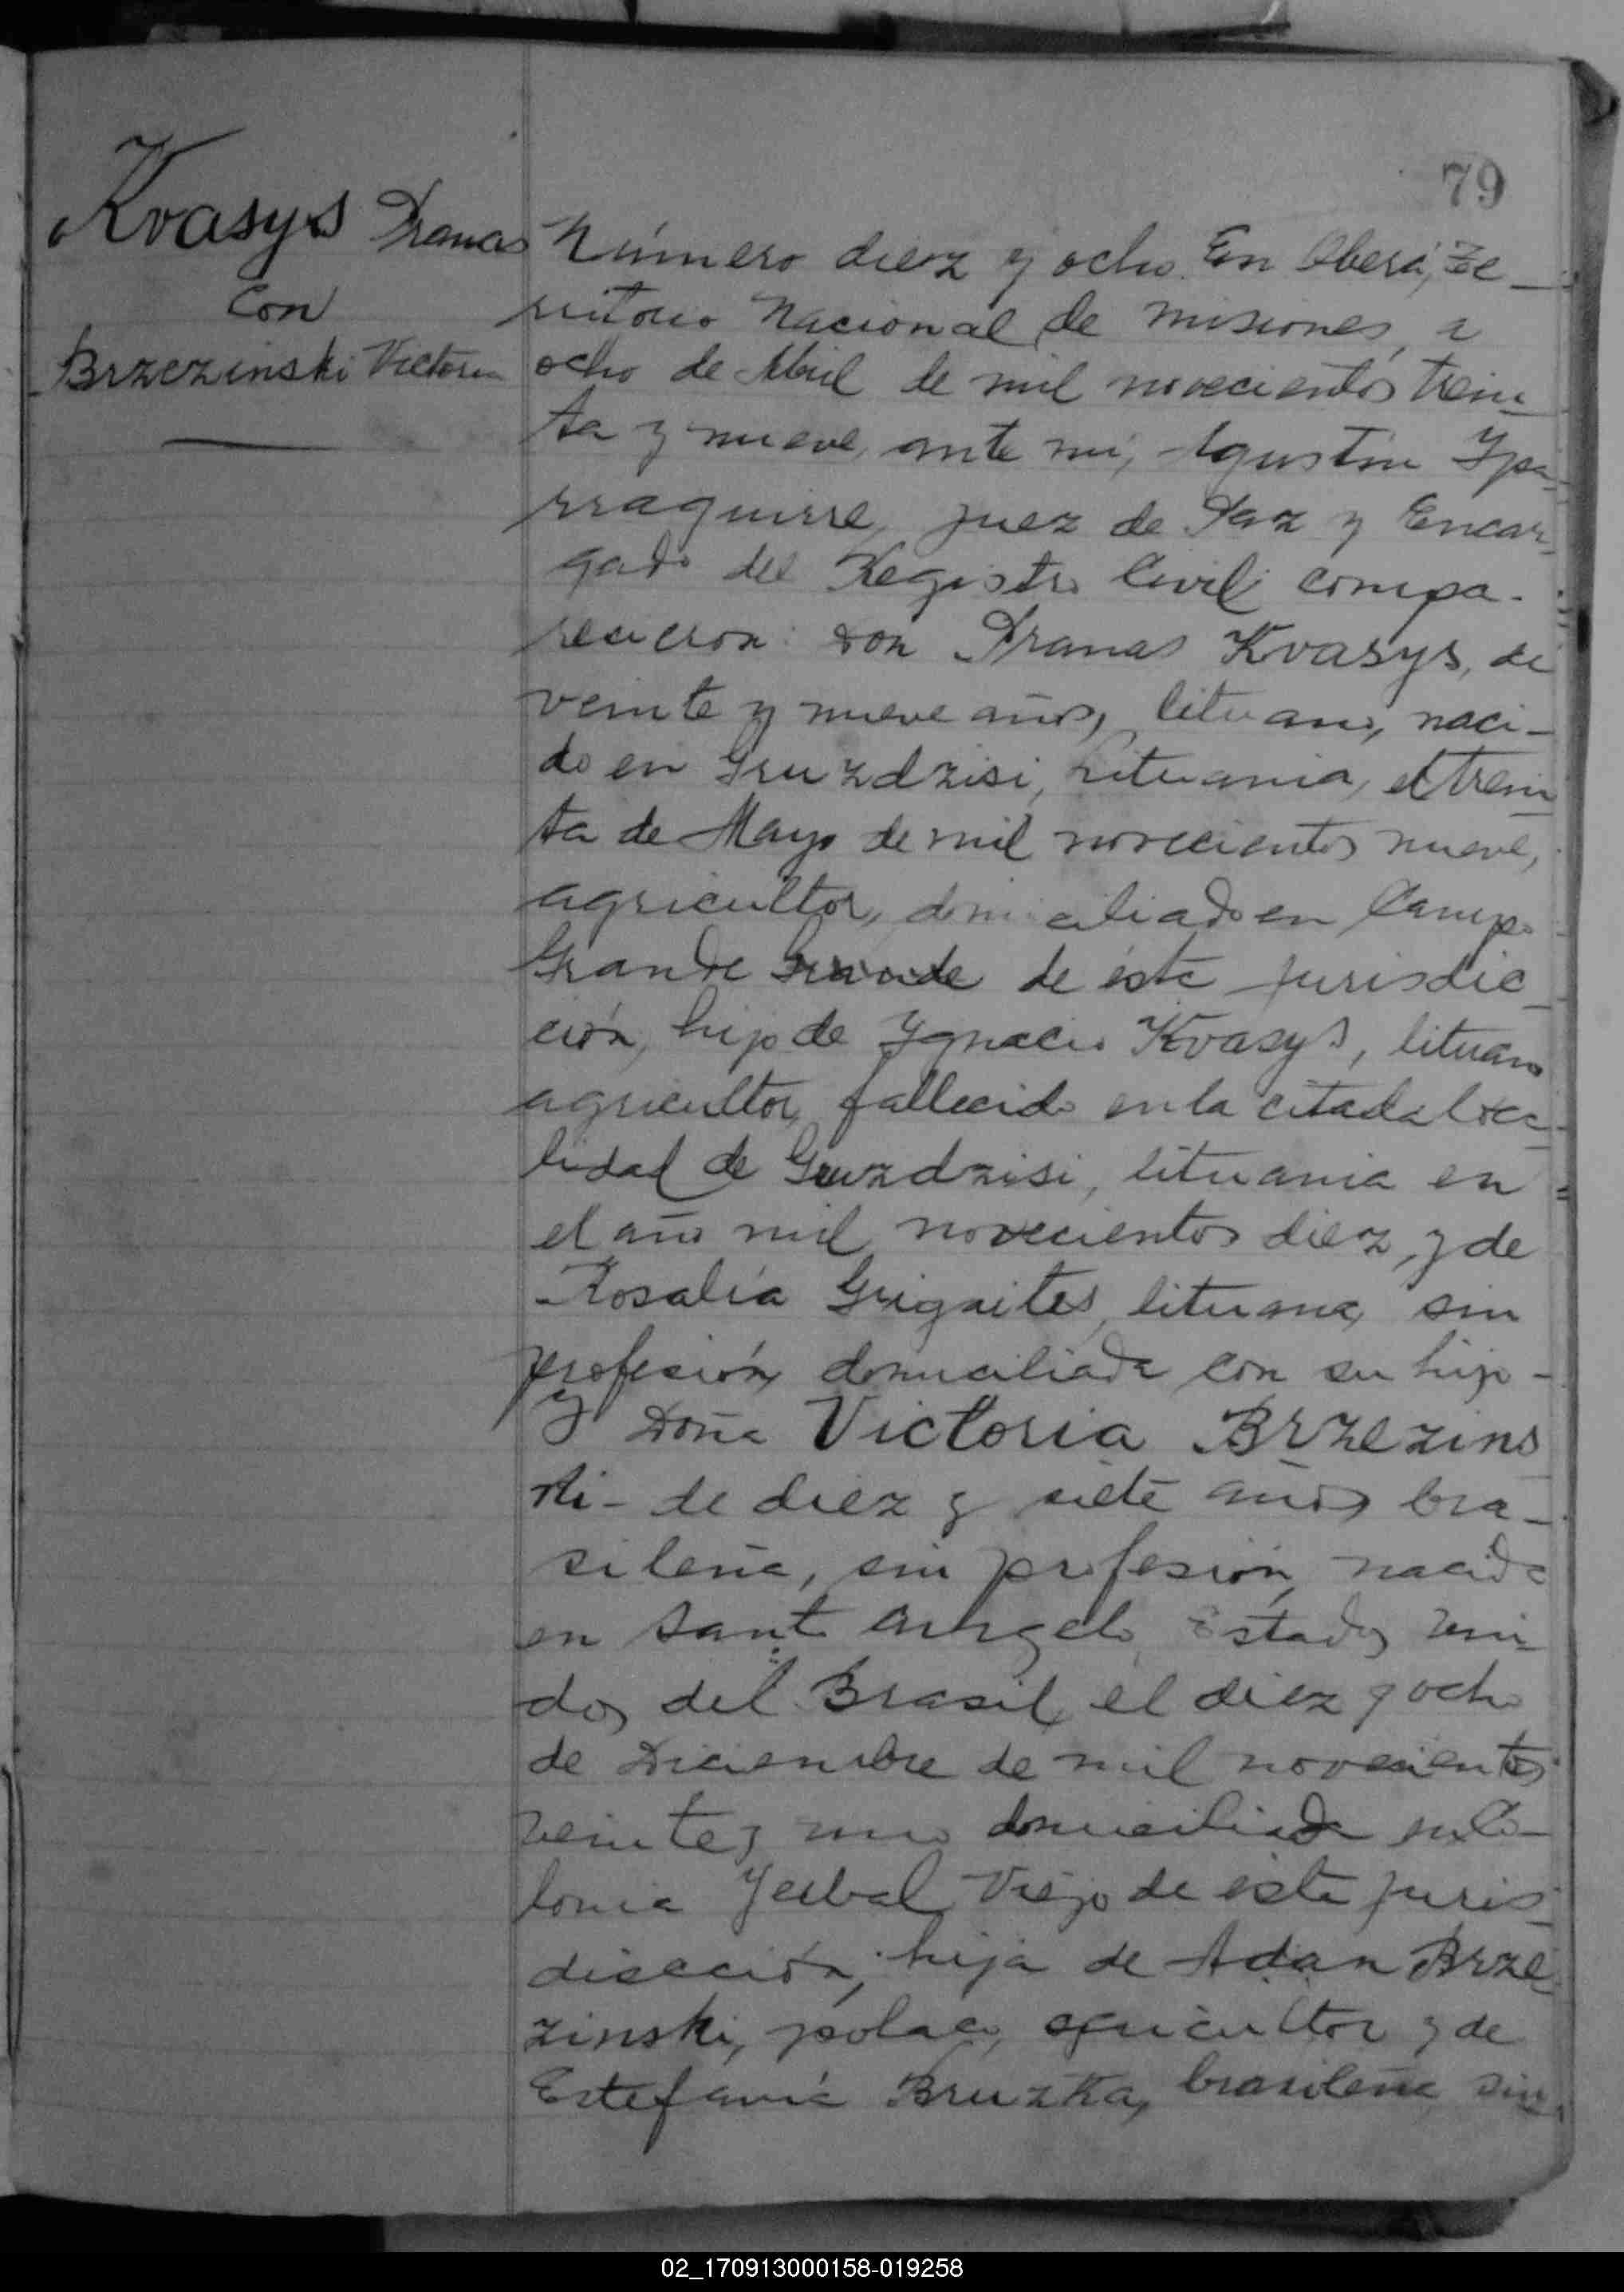 79
Kvasys Pranas
Con
Brzezinski Victoria
Número diez y ocho. En Oberá, Te-
rritorio Nacional de Misiones, a
ocho de Abril de mil novecientos trein-
ta y nueve, ante mí, Agustín Ypa-
rraguirre, Juez de Paz y Encar-
gado del Registro Civil compa-
recieron: Don Pranas Kvasys, de
veinte y nueve años, lituano, naci-
do en Gruzdzisi, Lituania, el trein-
ta de Mayo de mil novecientos nueve,
agricultor, domiciliado en Campo
Grande Grande de ésta jurisdic-
ción, hijo de Ygnacio Kvasys, lituano
agricultor, fallecido en la citada loca-
lidad de Gruzdzisi, lituania en
el año mil novecientos diez, y de
Rosalía Grigaites, lituana, sin
profesión, domiciliada con su hijo -
y Doña Victoria Brzezins
ki - de diez y siete años bra-
sileña, sin profesión, nacida
en Santo Angelo, Estados Uni-
dos del Brasil, el diez y ocho
de Diciembre de mil novecientos
veinte y uno domiciliada en Co-
lonia Yerbal Viejo de esta juris-
disección, hija de Adan Brze-
zinski, polaco, agricultor y de
Estefanía Bruzka, brasileña, sin
02_170913000158-019258